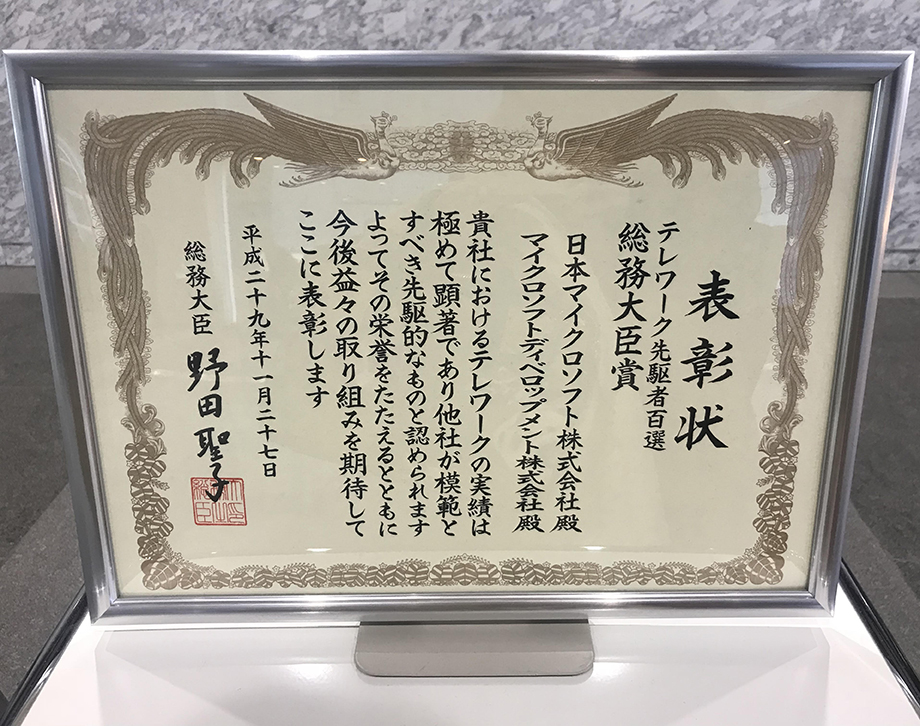 表彰状
テレワーク先駆者百選
総務大臣賞
日本マイクロソフト株式会社殿
マイクロソフトディベロップメント株式会社殿
貴社におけるテレワークの実績は
極めて顕著であり他社が模範と
すべき先駆的なものと認められます
よってその栄誉をたたえるとともに
今後益々の取り組みを期待して
ここに表彰します
平成二十九年十一月二十七日
総務大臣
野田聖子